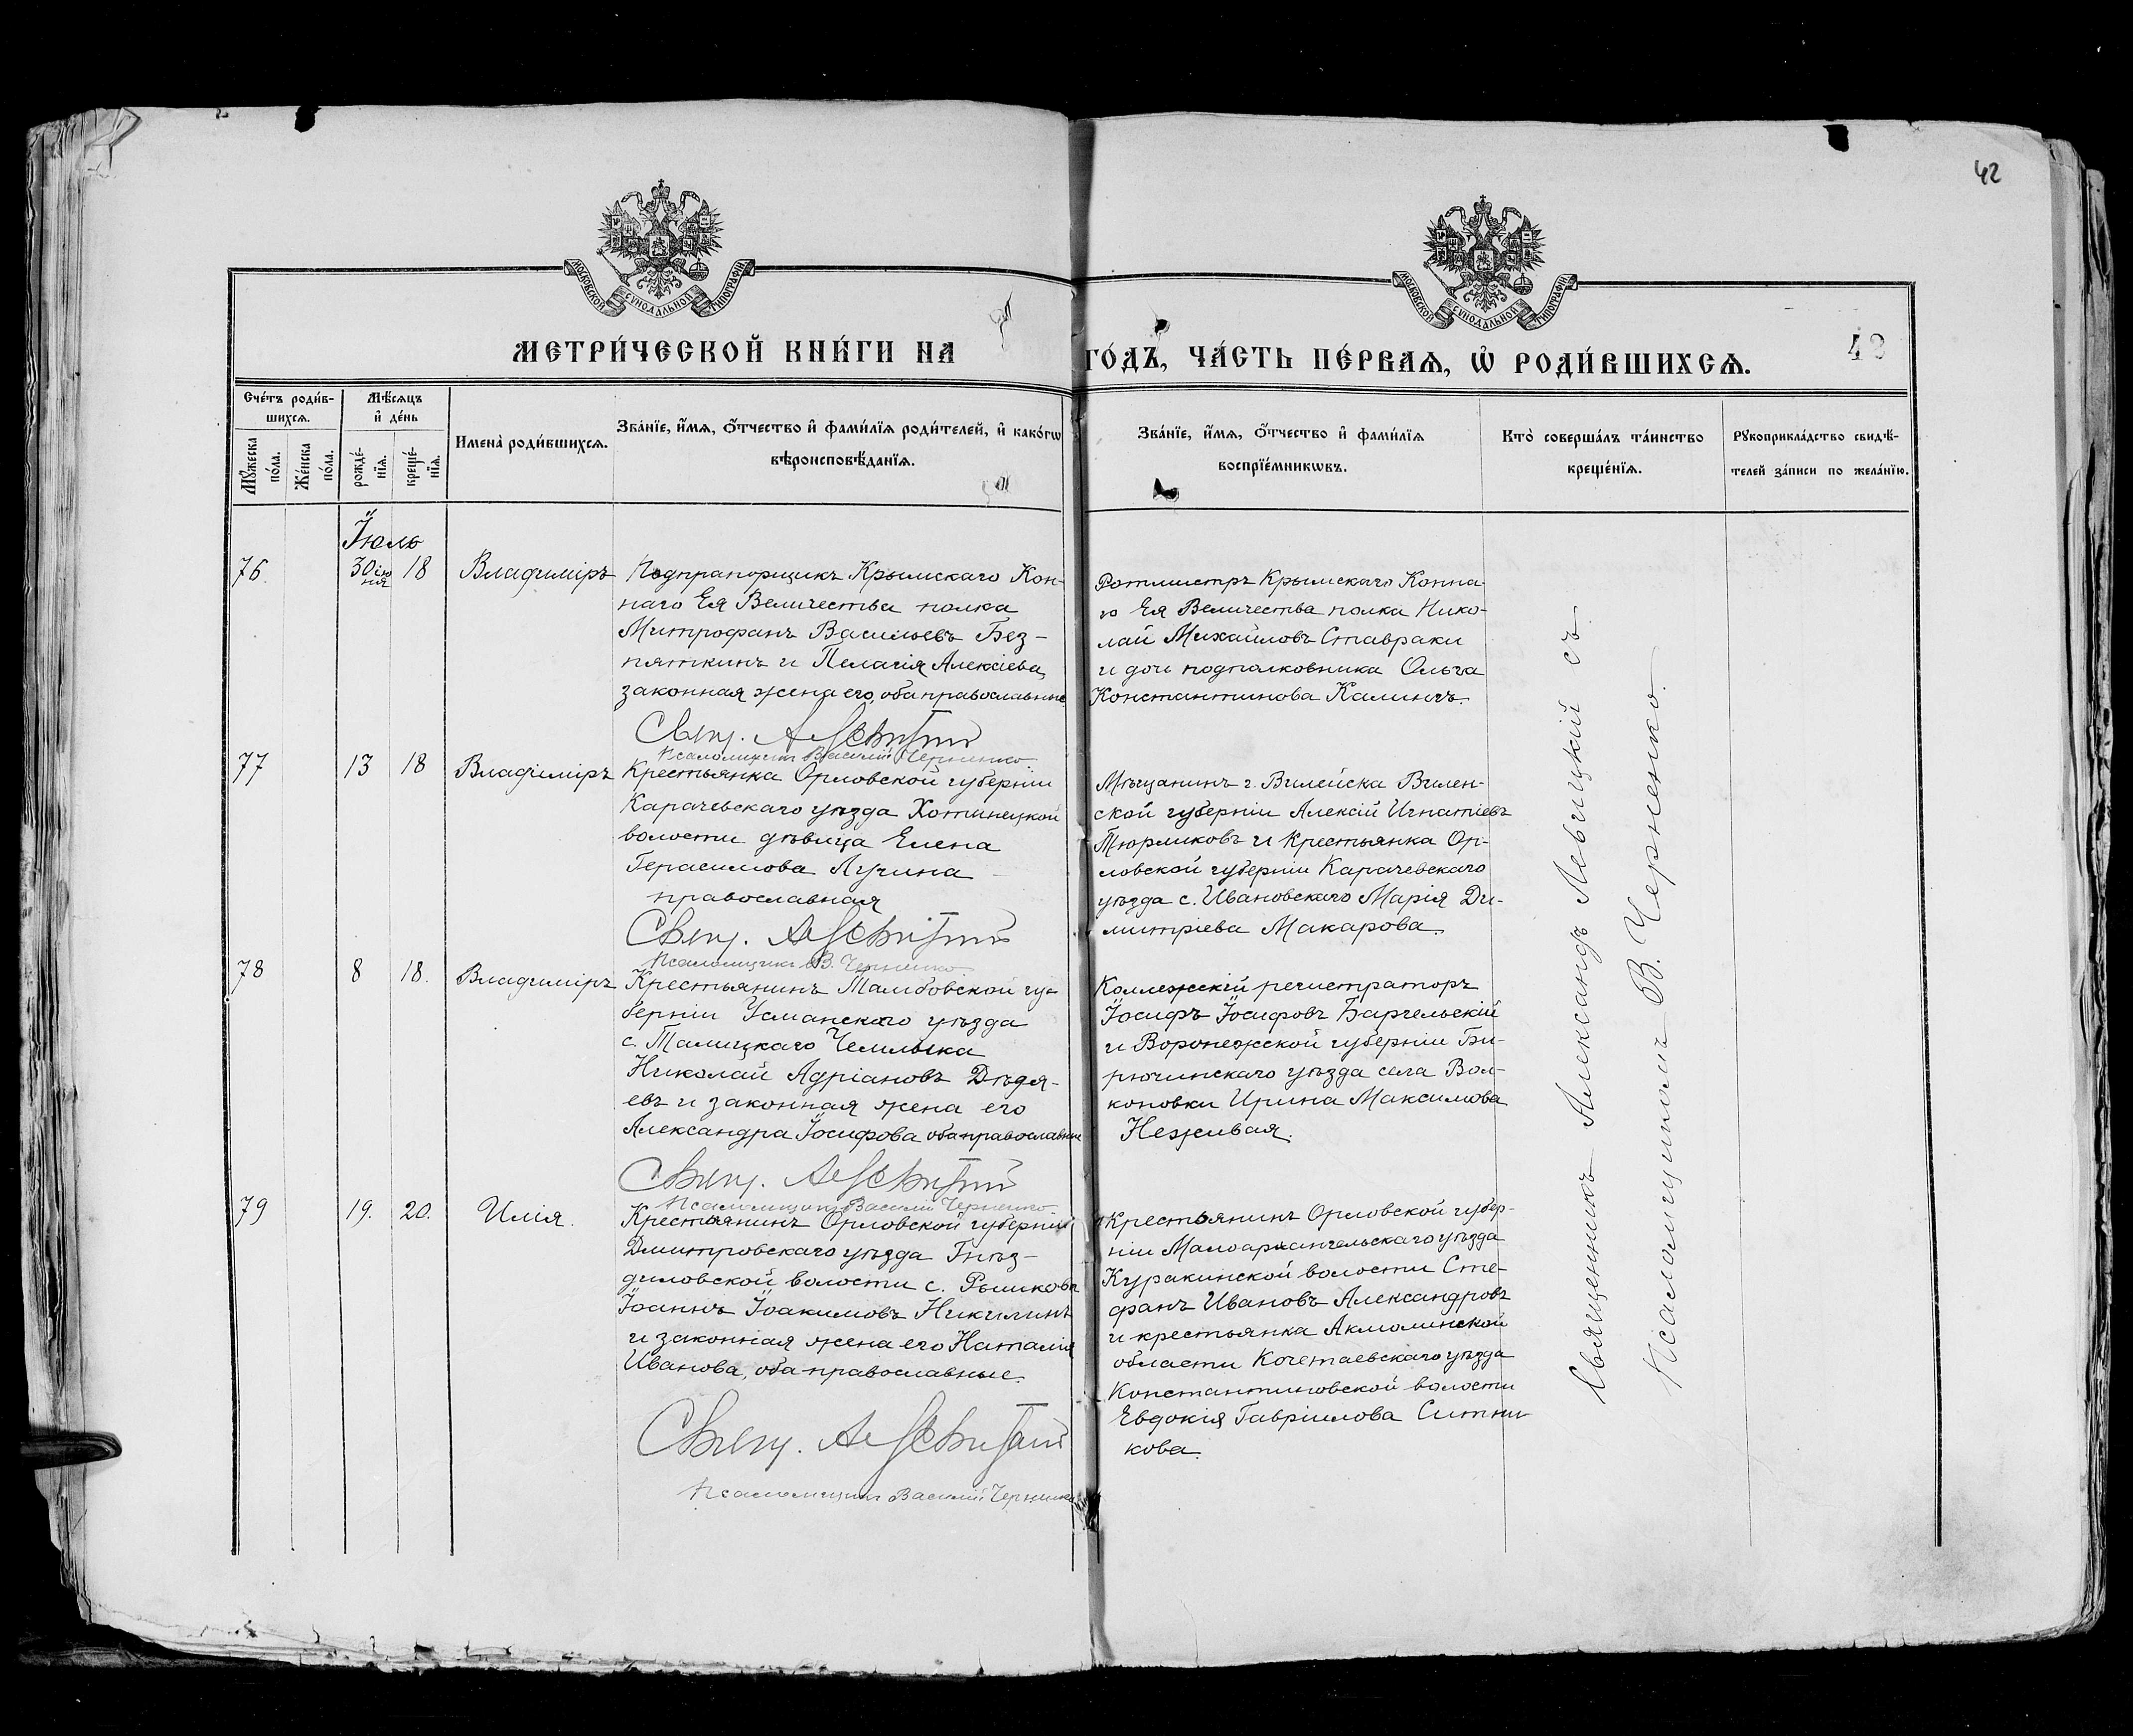 42
МОСКОВСКОЙ СУНОДАЛЬНОЙ ТИПОГРАФІИ
МОСКОВСКОЙ СУНОДАЛЬНОЙ ТИПОГРАФІИ
МЕТРИ́ЧЕСКОЙ КНИ́ГИ НА
ГО́ДЪ, ЧА́СТЬ ПЕ́РВАѦ, Ѡ҆ РОДИ́ВШИХСѦ.
Сче́тъ роди́в-
шихсѧ.
Мꙋ́жеска по́ла.
Же́нска по́ла.
Мѣ́сѧцъ
и҆ де́нь
рожде́-
нїѧ.
креще́-
нїѧ.
Имена̀ роди́вшихсѧ.
Зва́нїе, и҆́мѧ, ѻ҆́тчество и҆ фами́лїѧ роди́телей, и҆ како́гѡ
вѣроисповѣ́данїѧ.
Зва́нїе, и҆́мѧ, ѻ҆́тчество и҆ фами́лїѧ
воспрїе́мникѡвъ.
Кто̀ соверша́лъ та́инство
креще́нїѧ.
Рꙋкоприкла́дство свидѣ́-
телей за́писи по жела́нїю.
Іюль
76 30 іюня 18 Владиміръ
Подпрапорщикъ Крымскаго Кон-
наго Ея Величества полка
Митрофанъ Васильевъ Без-
пяткинъ и Пелагія Алексіева,
законная жена его, оба православные
Свящ. А Левитскій
Псаломщикъ Василій Черненко
Ротмистръ Крымскаго Конна-
го Ея Величества полка Нико-
лай Михайловъ Ставраки
и дочь подполковника Ольга
Константинова Калиничъ.
77 13 18 Владиміръ
Крестьянка Орловской губерніи
Карачевскаго уѣзда Хотинецкой
волости дѣвица Елена
Герасимова Лучина
православная
Свящ. А Левитскій
Псаломщикъ В. Черненко
Мѣщанинъ г. Вилейска Вилен-
ской губерніи Алексій Игнатіевъ
Тюрликовъ и Крестьянка Ор-
ловской губерніи Карачевскаго
уѣзда с. Ивановскаго Марія Ди-
митріева Макарова.
78 8 18. Владиміръ
Крестьянинъ Тамбовской гу-
берніи Усманскаго уѣзда
с. Талицкаго Чемлыка
Николай Адріановъ Дѣдя-
евъ и законная жена его
Александра Іосифова оба православные
Свящ. А Левитскій
Псаломщикъ Василій Черненко
Коллежскій регистраторъ
Іосифъ Іосифовъ Баргельскій
и Воронежской губерніи Би-
рючинскаго уѣзда села Вол-
коновки Ирина Максимова
Неживая.
79 19. 20. Илія.
Крестьянинъ Орловской губерніи
Дмитровскаго уѣзда Гнѣз-
диловской волости с. Рышкова
Іоаннъ Іоакимовъ Никулинъ
и законная жена его Наталія
Иванова, оба православные.
Свящ. А Левитскій
Псаломщикъ Василій Черненко
Крестьянинъ Орловской губер-
ніи Малоархангельскаго уѣзда
Куракинской волости Сте-
фанъ Ивановъ Александровъ
и крестьянка Акмолинской
области Кочетаевскаго уѣзда
Константиновской волости
Евдокія Гавріилова Ситни-
кова.
Священникъ Александръ Левицкій съ
Псаломщикомъ В. Черненко.